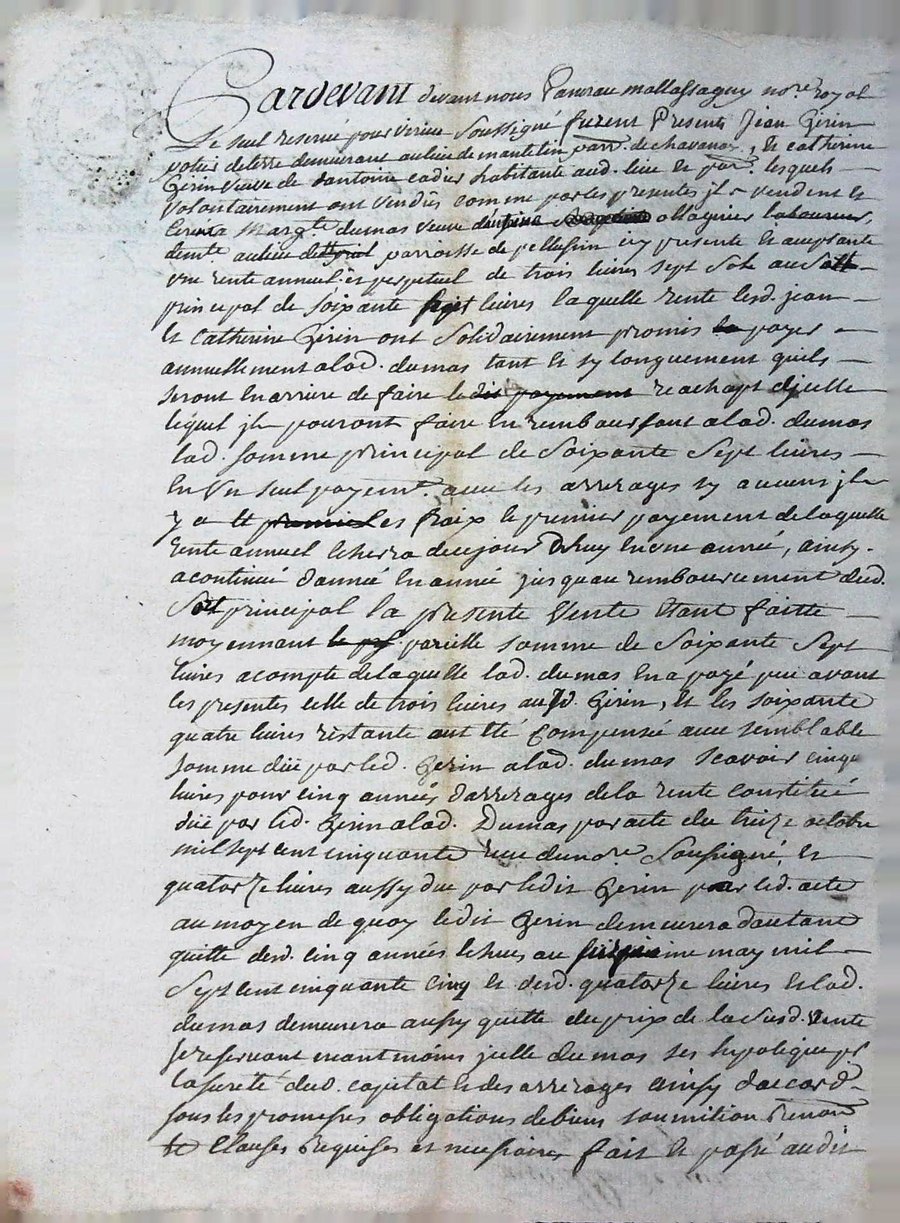 Pardevant devant nous mallassagny no.re royal
Le seul reservé pour Virieu Soussigné furent Presents Jean Gerin
voturier de terre demeurant au lieu de mantelin parr.e de chavanay, et catherine
Gerin veuve de d'antoine cadier habitante aud. lieu et par.e lesquels
volontairement ont vendus comme par les presentes jls vendent et
a Marg.te dumas veuve laboureur,
dem.te au lieu parroisse de pellussin icy presente et acceptante
une rente annuel et perpetuel de trois livres sept sols au Sort
principal de soixante sept livres laquelle rente lesd. jean
et Catherine Gerin ont solidairement promis la payer
annuellement a lad. dumas tant et sy longuement quils
seront en arriere de faire le dit payement reachapt djcelle
lequel jls pouront faire en remboursant a lad. dumas
lad. somme principal de soixante sept livres
en un seul payem.t avec les arrerages sy aucuns jls
y a et les fraix le premier payement de laquelle
rente annuel echerra de ce jour Dhuy en une année, ainsy
a continué d'année en année jusquau remboursement dud.
Sort principal la presente Vente étant faitte
moyennant pareille somme de soixante sept
livres a compte de laquelle lad. dumas en a payé peu avant
les presentes celle de trois livres aud. Gerin, et les soixante
quatre livres restante ont été compensé avec semblable
somme düe par led. Gerin a lad. dumas scavoir cinqu
livres pour cinq années d'arrerages de la rente constitüé
düe par led. Gerin a lad. Dumas par acte du treize octobre
mil sept cent cinquante recu du no.re Soussigné, et
quatorze livres aussy due par ledit Gerin par led. acte
au moyen de quoy ledit Gerin demeurera d'autant
quitte desd. cinq années echues au may mil
Sept cent cinquante cinq et desd. quatorze livres et lad.
dumas demeurera aussy quitte du prix de la susd. Vente
se reservant neantmoins jcelle dumas ses hypoteque pr
la sureté dud. capital et des arrerages ainsy d'accord
sous les promesses obligations de biens soumition Renon
et Clauses Requises et necessaires fait et passé audit